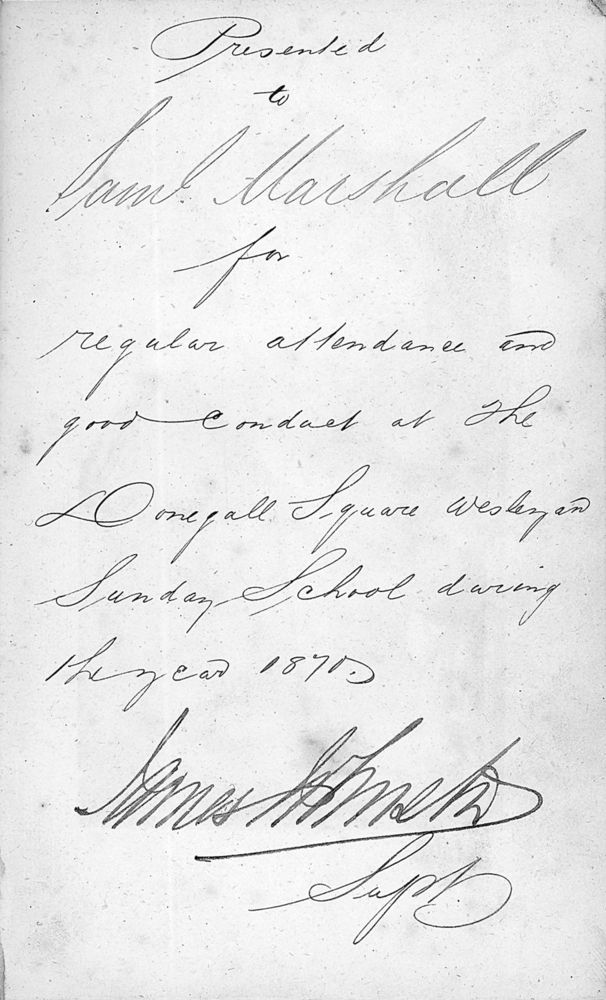 Presented
to
Saml. Marshall
for
regular attendance and
good conduct at the
Donegall Square Wesleyan
Sunday School during
the year 1870
James
Supt.